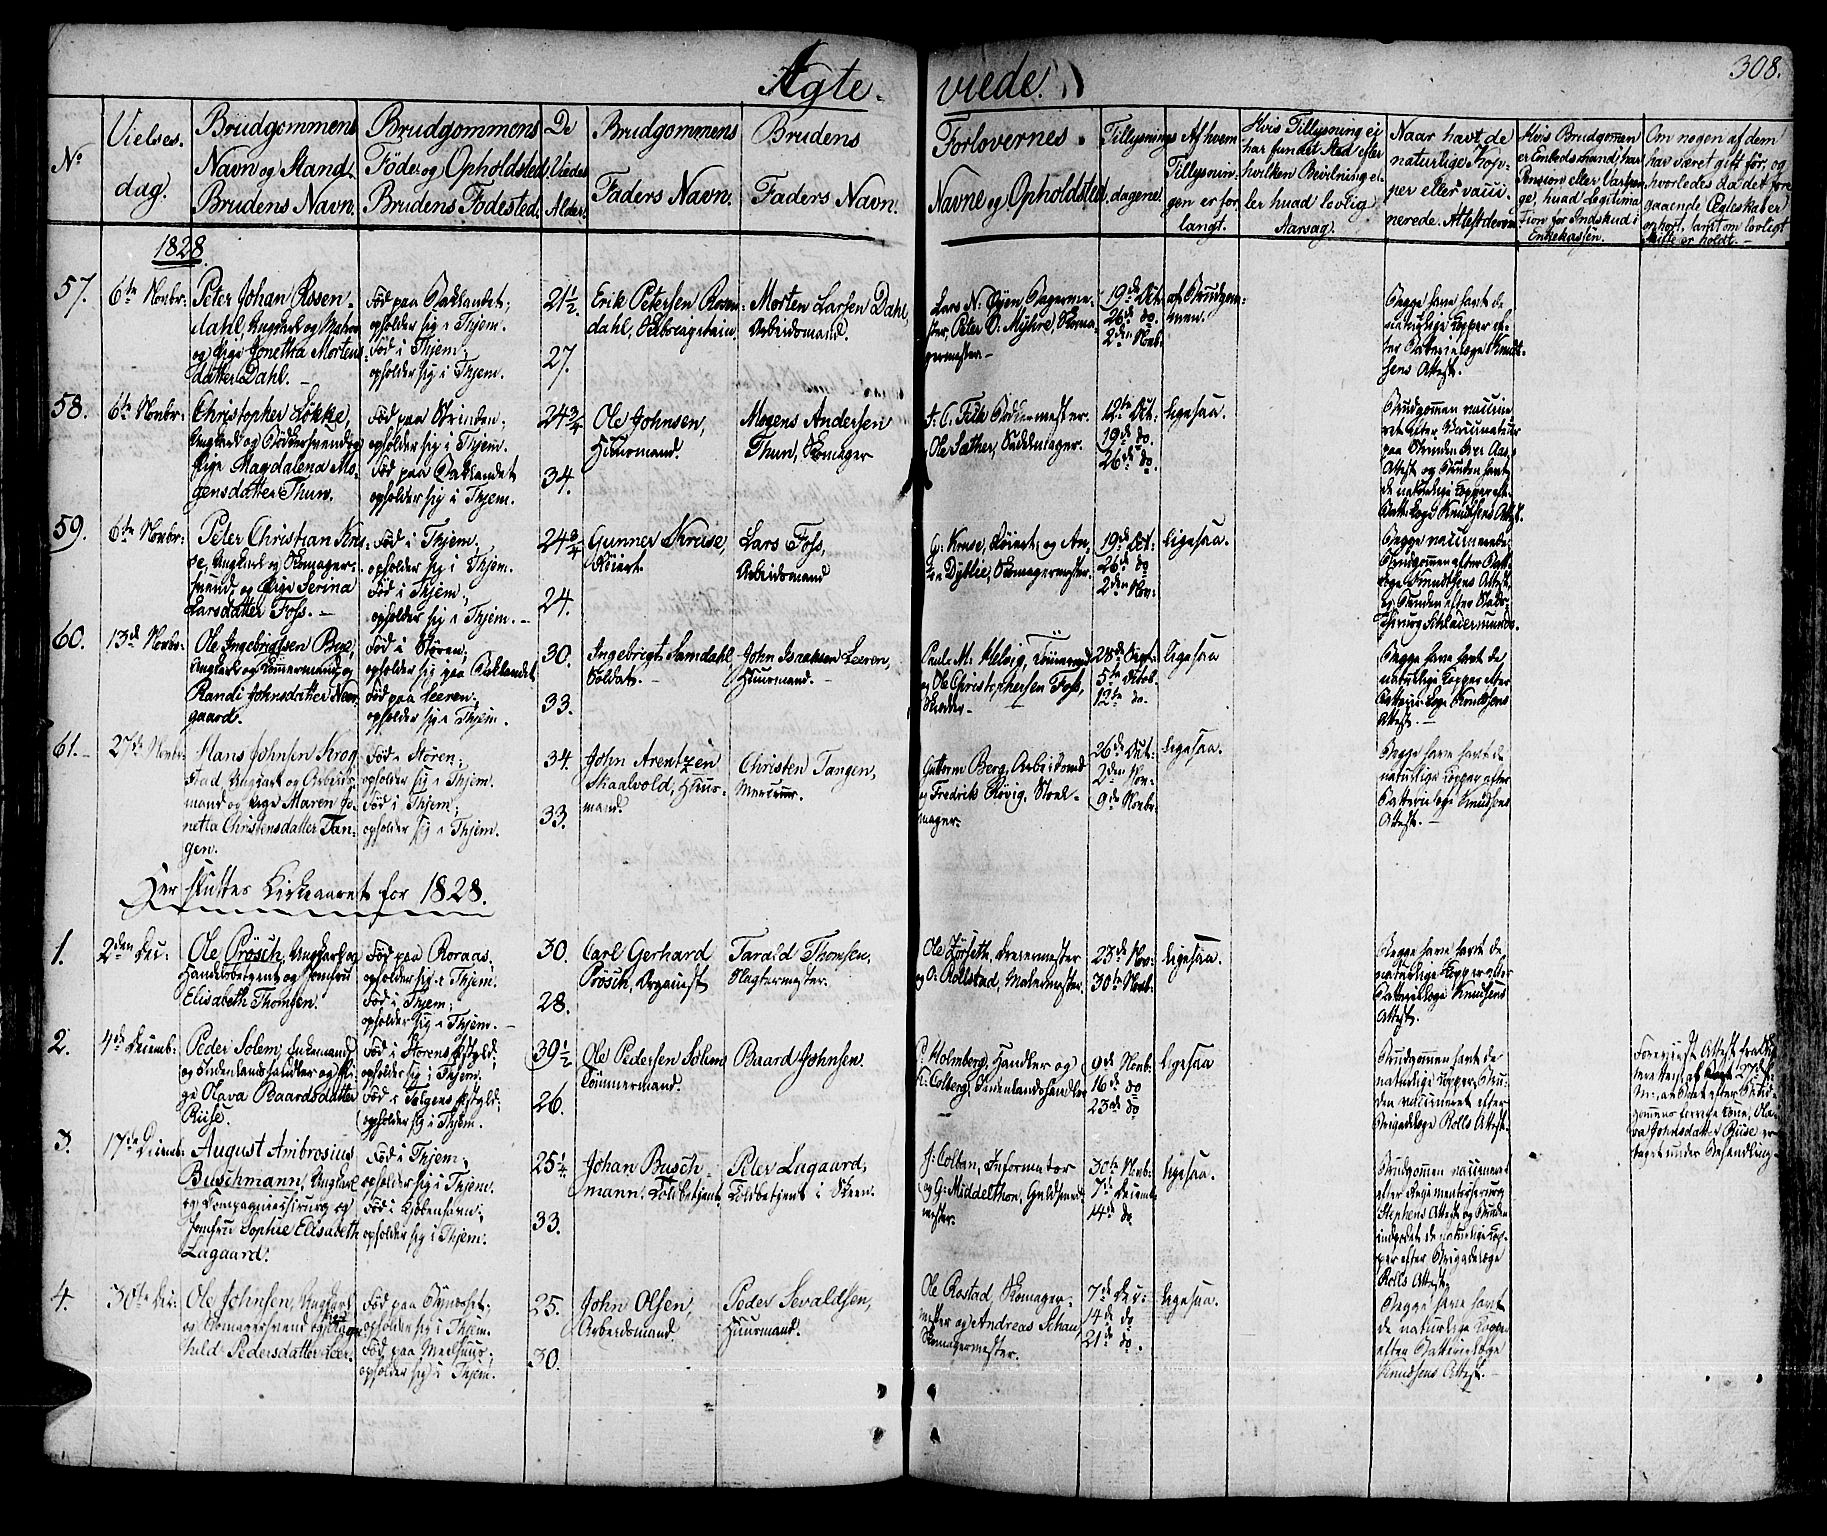 Ægte viede.
308.
No
Vielses-
dag.
Brudgommens
Navn og Stand.
Brudens Navn.
Brudgommens
Föde- og Opholdsted.
Brudens Födested.
De
Viedes
Alder.
Brudgommens
Faders Navn.
Brudens
Faders Navn.
Forlovernes
Navne og Opholdsted.
Tillysnings
dagene.
Af hvem
Tillysnin-
gen er for
langt.
Hvis Tillysning ei
har fundet Sted efter
hvilken Bevilning el-
ler hvad lovlig
Aarsag.
Naar havt de
naturlige Kop-
per eller vacci-
nerede. Attest derom
Hvis Brudgommen
er Embedsmand, har
Pension eller Vartpen
ge, hvad Legitima
tion for Indskud i
Enkekassen.
Om nogen af dem
har været gift för, og
hvorledes da det fore
gaaende Ægteskab er
ophört, samt om lovligt
Skifte er holdt.
1828.
57.
6te Novbr:
Peter Johan Rosen-
dahl, Ungkarl og
og Pige Jonetta Mortens-
datter Dahl.
Föd paa Baklandet;
opholder sig i Thjem.
Föd i Thjem;
opholder sig i Thjem.
21 1/2
27.
Erik Petersen Rosen
dahl,
Morten Larsen Dahl,
Arbeidsmand.
Lars N: Öyen, Bagerme-
ster, Peter O: Myhre, Skoma-
germester.
19de Oct:
26de do.
2den Nov:
af Brudgom-
men.
Begge have havt de
naturlige Kopper ef-
ter Batterielæge Knud-
sens Attest.
58.
6te Novbr:
Christopher Løkke,
Ungkarl og Bödkersvend og
Pige Magdalena Mo-
gensdatter Thun.
Föd paa Strinden;
opholder sig i Thjem.
Föd paa Baklandet
opholder sig i Thjem.
24 3/4
34.
Ole Johnsen,
Huusmand.
Mogens Andersen
Thun, Skomager
Bödkermester.
Ole Sæther, Sadelmager.
12te Oct:
19de do
26de do
ligesaa.
Brudgommen vaccine-
ret efter Vaccinateur
paa Strinden
Attest og Bruden havt
de naturlige Kopper eft.
Batt: Læge Knudsens Attest.
59.
6te Novbr:
Peter Christian Kru-
se, Ungkarl og Skomager-
svend, og Pige Serina
Larsdatter Foss.
Föd i Thjem.
opholder sig i Thjem.
Föd i Thjem;
opholder sig i Thjem.
24 3/4
24.
Gunner Kruse,
Lars Foss,
Arbeidsmand
G: Kruse, og An-
Dyblie, Skomagermester.
19de Oct:
26de do
2den Nov:
ligesaa.
Begge vaccinerede
Brudgommen efter Batt:
læge Knudtsens Attest
og Bruden efter Stads-
chirurg Schleiermunds.
60.
13de Novbr:
Ole Ingebrigtsen Bye,
Ungkarl og Tömmermand, og
Randi Johnsdatter Nor-
gaard.
Föd i Stören;
opholder sig paa Baklandet
Föd paa Leeren;
opholder sig i Thjem.
30.
33.
Ingebrigt Samdahl
Soldat.
John Isachsen Leeren,
Huusmand.
Paul M: Helvig, Tömmermd
og Ole Christophersen Foss,
28de Sept:
5te Octob.
12te do.
ligesaa
Begge have havt de
naturlige Kopper efter
Batterie-Læge Knudsens
Attest.
61.
27de Novbr:
Hans Johnsen Krog
stad, Ungkarl og Arbeids-
mand og Pige Maren Jo-
netta Christensdatter Tan-
gen.
Föd i Stören;
opholder sig i Thjem.
Föd i Thjem;
opholder sig i Thjem.
34.
33.
John Arentzen
Skaalvold, Huus-
mand.
Christen Tangen,
Guttorm Berg, Arbeidsmd
og Fredrik Rövig, Stoel-
mager.
26de Oct:
2den Nov:
9de Novbr:
ligesaa.
Begge have havt de
naturlige Kopper efter
Batterielæge Knudsens
Attest.
Her sluttes Kirkeaaret for 1828.
1.
2den Dec:
Ole Prösch, Ungkarl og
Handelsbetjent og Jomfru
Elisabeth Thomsen.
Föd paa Roraas;
opholder sig i Thjem.
Föd i Thjem;
opholder sig i Thjem.
30.
28.
Carl Gerhard
Prösch, Organist
Tarald Thomsen,
Slagtermester.
Ole
og O: Rollstad, Malermester.
23de Nov:
30te Novb:
ligesaa.
Begge have havt de
naturlige Kopper efter
Batterielæge Knudsens
Attest.
2.
4de Decemb:
Peder Solem, Enkemand
og Indenlandshandler og Pi-
ge Olava Baardsdatter
Riise.
Föd i Störens Præstgld:
opholder sig i Thjem.
Föd i Tolgens Præstgld:
opholder sig i Thjem.
39 1/2
26.
Ole Pedersen Solem
Tömmermand.
Baard Johnsen.
P: Holmberg, Handler og
K: Colberg, Indenlandshandler
9de Novb:
16de do
23de do
ligesaa
Brudgommen havt de
naturlige Kopper, Bru-
den vaccineret efter
Brigadelæge Rolls Attest.
Forevist Attest fra Skif
27de f:
M: at Boet efter Brud-
gommens forrige Kone, Ola-
va Johnsdatter Riise er
taget under Behandling.
3.
17de Decemb:
August Ambrosius
Buschmann, Ungkarl
og Compagniechirurg og
Jomfru Sophie Elisabeth
Lagaard.
Föd i Thjem;
opholder sig i Thjem.
Föd i Kiöbenhavn;
opholder sig i Thjem.
25 1/4
33.
Johan Busch-
mann, Toldbetjent
Peter Lagaard,
Toldbetjent i Skeen.
J: Colban, Informator
og G: Middelthon, Guldsmed-
mester.
30te Novb:
7de Decemb
14de do
ligesaa.
Brudgommen vaccineret
efter Regimentschirurg
Stephens Attest og Bruden
indpodet de naturlige Kop-
per efter Brigadelæge
Rolls Attest.
4.
30te Dec:
Ole Johnsen, Ungkarl
og Skomagersvend og Pige
hild Pedersdatter
Föd paa Bynæsset;
opholder sig i Thjem.
Föd paa Meelhuus;
opholder sig i Thjem.
25.
30.
John Olsen,
Arbeidsmand
Peder Sevaldsen,
Huusmand.
Ole Rostad, Skomager-
mester og Andreas Schau
Skomagermester.
7de Dec:
14de do
21de do.
ligesaa.
Begge have havt
de naturlige Kopper
efter Batterielæge
Knudsens Attest.